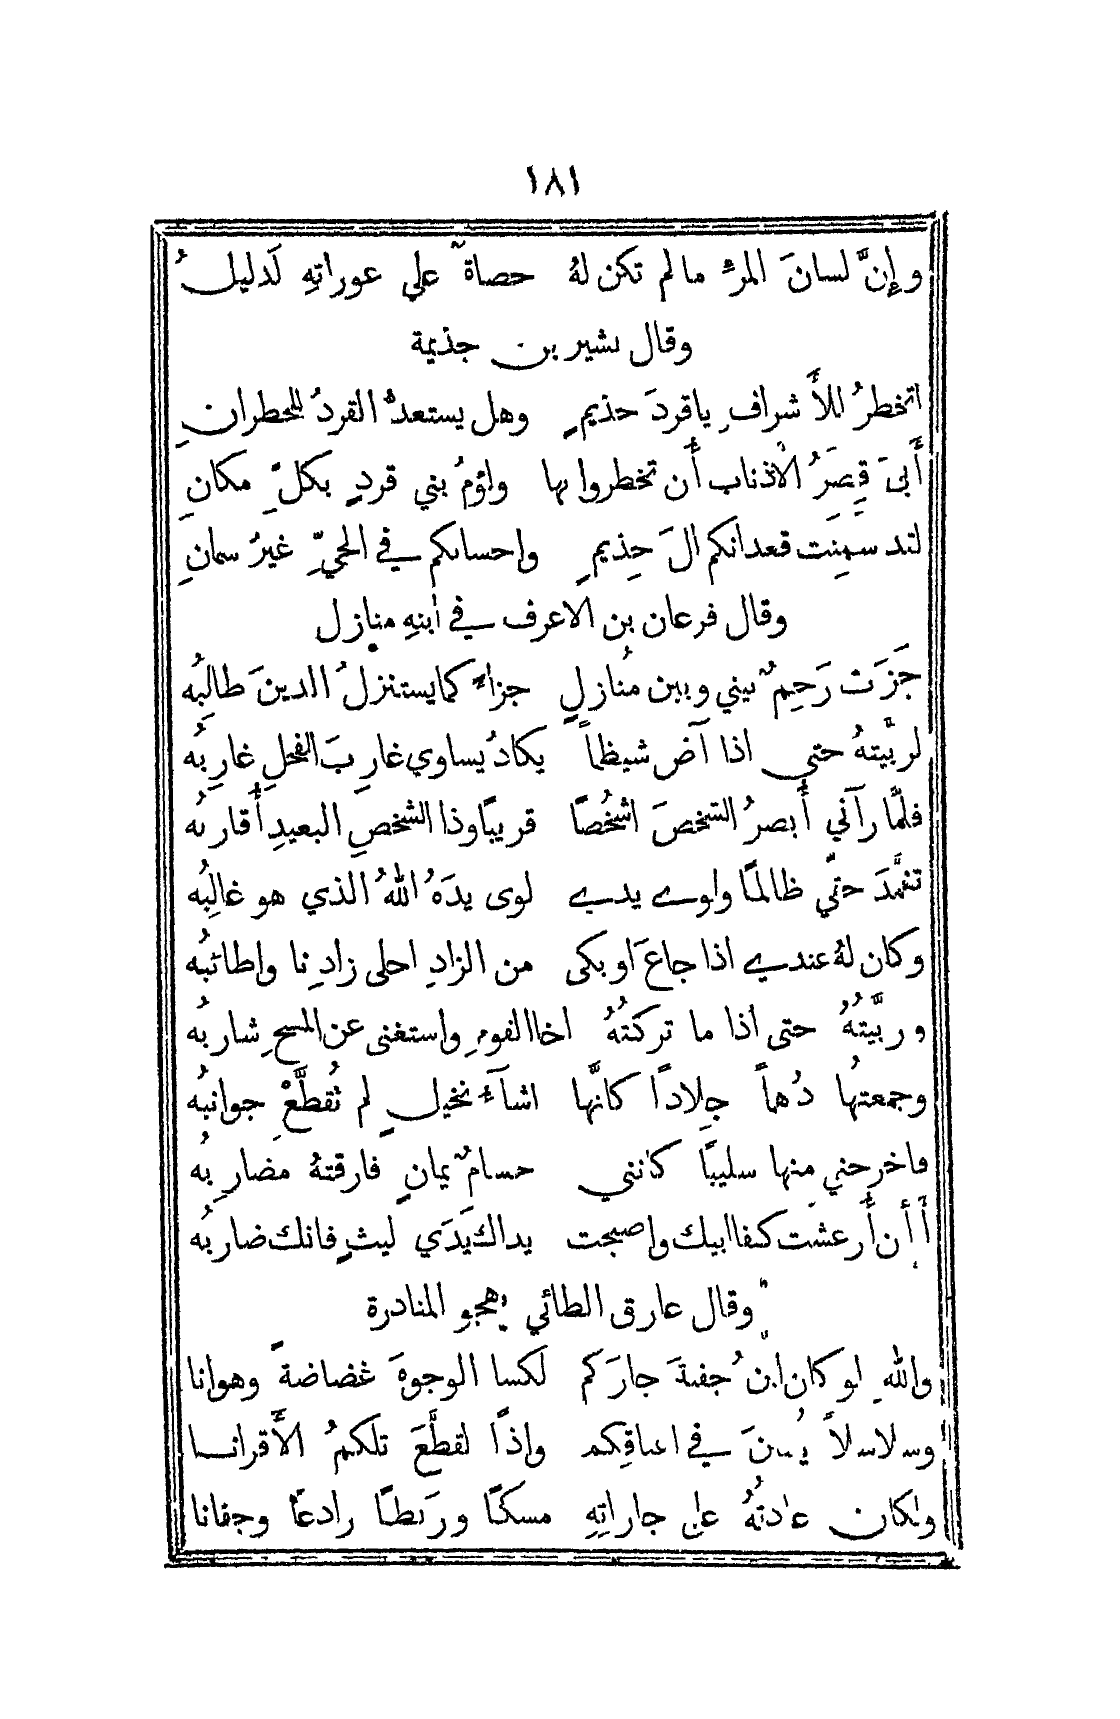 ١٨١
وإِنَّ لسانَ المرءِ ما لم تكن لهُ حصاةٌ على عوراتهِ لَدليلُ
وقال بشير بن جذيمة
اتخطرُ للأَشرافِ ياقردَ حذيمٍ وهل يستعدُّ القردُ للخطرانِ
أَبىَ قِصَرُ الأَذناب أَن تخطروا بها ولؤمُ بني قردٍ بكلّ مكانِ
لقد سمِنَت قعدانكم الَ حِذيمٍ واحسابكم في الحيِّ غيرُ سمانِ
وقال فرعان بن الاعرف في ابنهِ منازل
جَزَت رَحِمٌ بيني وبين مُنازلٍ جزاءً كما يستنزلُ الدينَ طالبُه
لربَّيتهُ حتى اذا آض شيظماً يكادُ يساوي غاربَ الفحلِ غارِبُه
فلمَّا رآني أَبصرُ الشخصَ اشخُصًا قريبًا وذا الشخصِ البعيدِ أَقاربُه
تغمَّدَ حقّي ظالمًا ولوى يدي لوى يدَهُ اللهُ الذي هو غالِبُه
وكان لهُ عندي اذا جاعَ او بكى من الزادِ احلى زادِنا واطائبُه
وربَّيتهُ حتى اذا ما تركتُهُ اخا القومِ واستغنى عن المسحِ شاربُه
وجمعتُها دُهماً جِلادًا كأنَّها اشآءُ نخيلٍ لم تُقطَّعْ جوانبُه
فاخرجني منها سليبًا كانني حسامٌ يمانٍ فارقتهُ مضاربُه
أَأَن أُرعشَت كفا ابيك واصبحت يداك يَدَي ليثٍ فانك ضاربُه
وقال عارق الطائي يهجو المناذرة
واللهِ لو كان ابنُ جفنةَ جارَكم لَكسا الوجوهَ غضاضةً وهوانا
وسلاسلاً يُثنَينَ في اعناقِكم وإِذًا لقطَّعَ تلكمُ الأَقرانا
ولكان عادتهُ على جاراتهِ مسكًا وريطًا رادعًا وجفانا